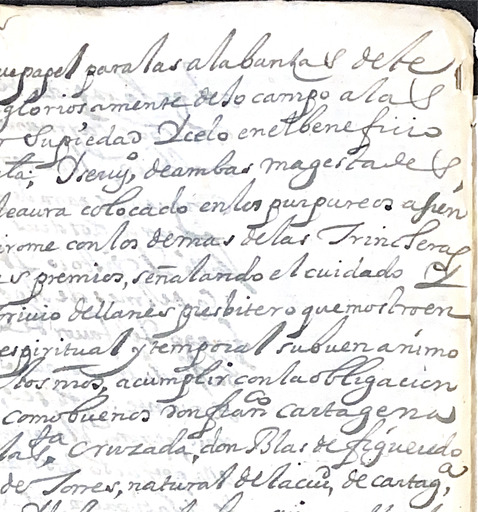 papel para las alabantas de te
gloriosamente de lo campo a la S
Supiedad Y celo en el beneficio
Y seruy.o, de ambas magestades,
le aura colocado en los purpureos asien
irome con los demas de las Trincheras
s premios, señalando el cuidado Y
de llanes presbitero que mostro en
espiritual y temporal su buen animo
los mos, a cumplir con la obligacion
como buenos don fran.co cartagena
la S.ta Cruzada, don Blas de figueredo
de Torres, natural de la ciu.d, de cartag.a,